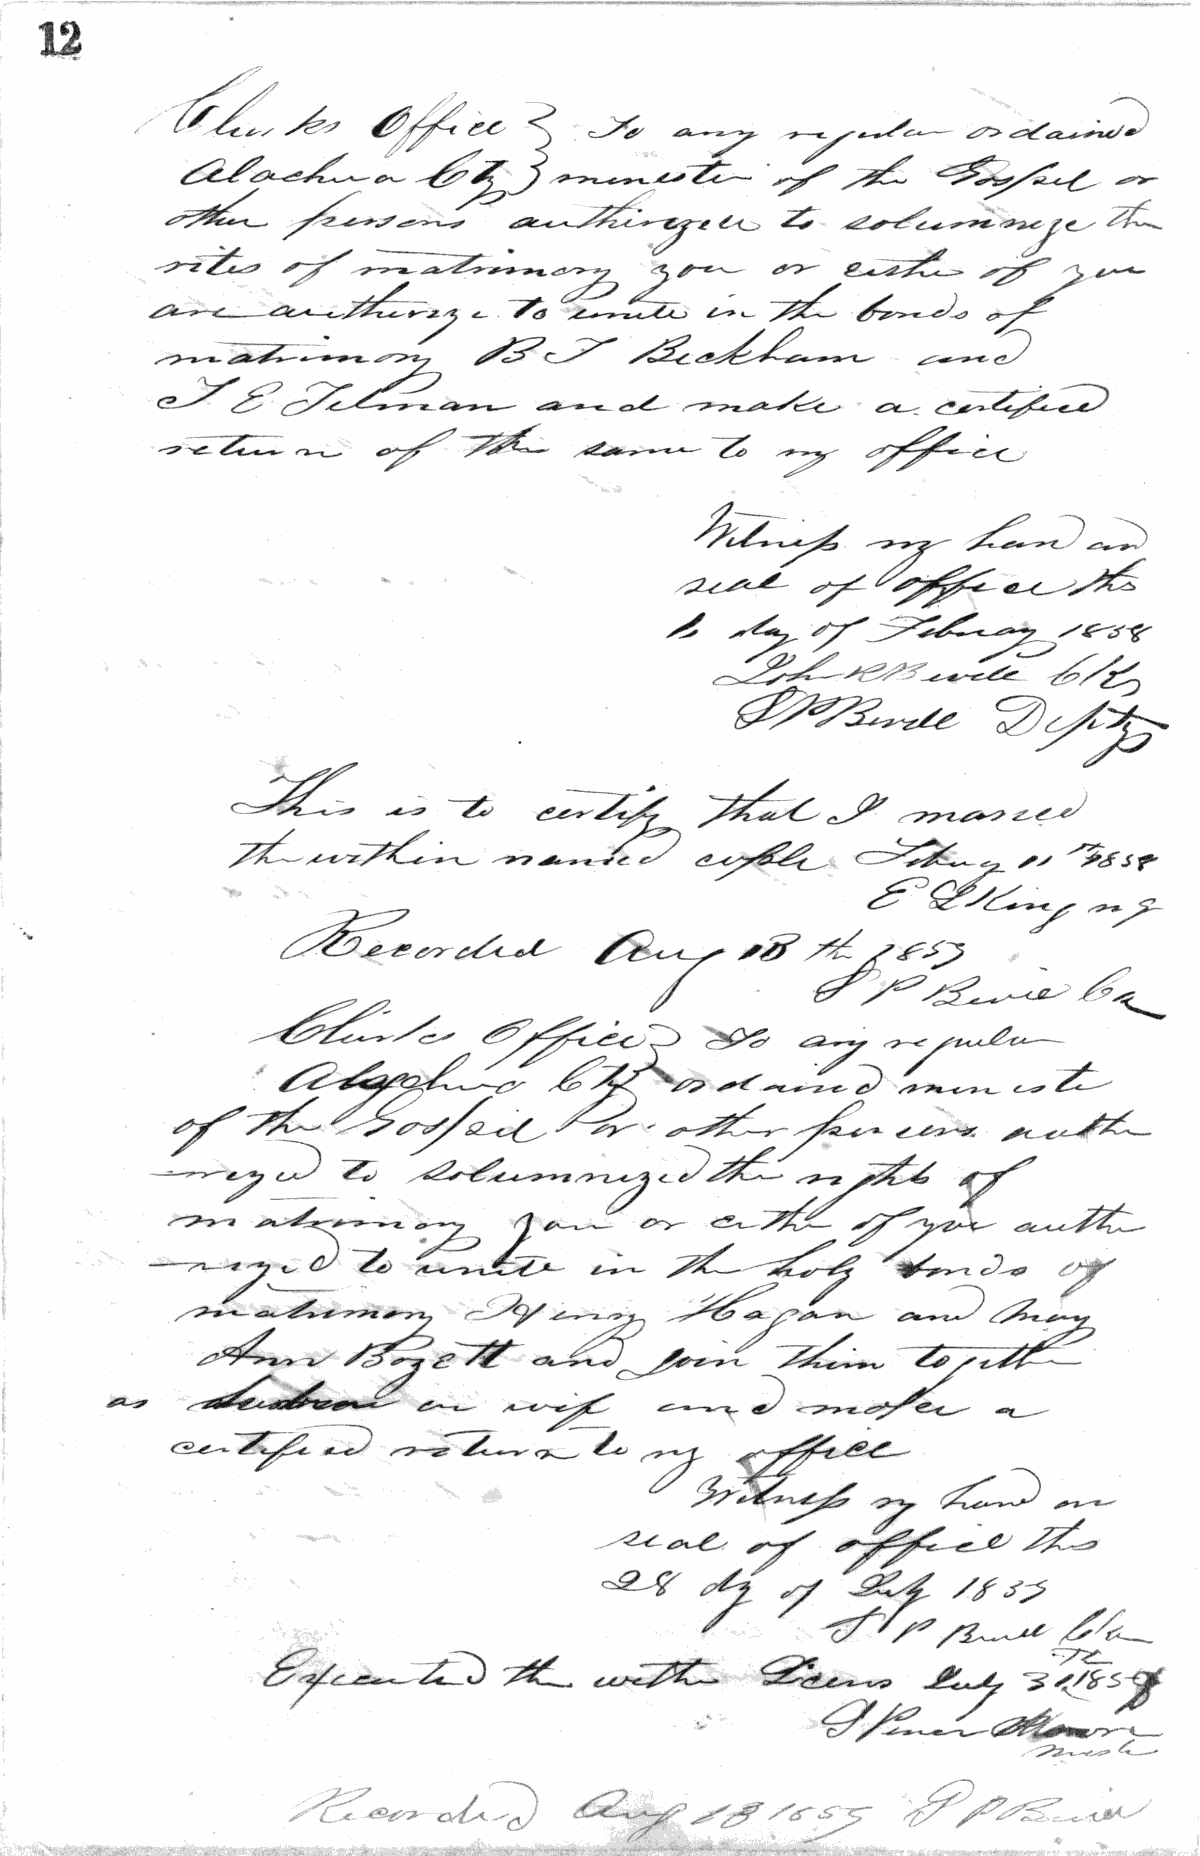 12
Clerks Office } To any regular ordained
Alachua Cty } menester of the Gosspel or
other persons authirezeed to solumnize the
rites of matrimony you or eather of you
are autherize to unite in the bonds of
matrimony B T Beckham and
T E Tilman and make a certifeed
return of the same to my office
Witness my hand and
seal of office this
day of Februay 1858
John R Bevill Clk
S P Bevill Depty
This is to certify that I marred
the within named cople Febuay 11th 1858
E L King
Recorded Aug 18 th 1859
S P Bevill Clk
Clerks Office } To any regular
Alachua Cty } ordained meneste
of the Gosspel or other persons authe
-rized to solumnized the rights of
matrimony you or eather of you authe
-rized to unite in the holy bonds of
matrimony Henry Hagan and May
Ann Bozett and join them together
as husban an wife and make a
certified return to my office
Witness my hand an
seal of office this
28 dy of July 1859
S P Bevill Clk
Executed the within Licens July 31th 1859
Moore
Recorded Aug 18 1859 S P Bevill